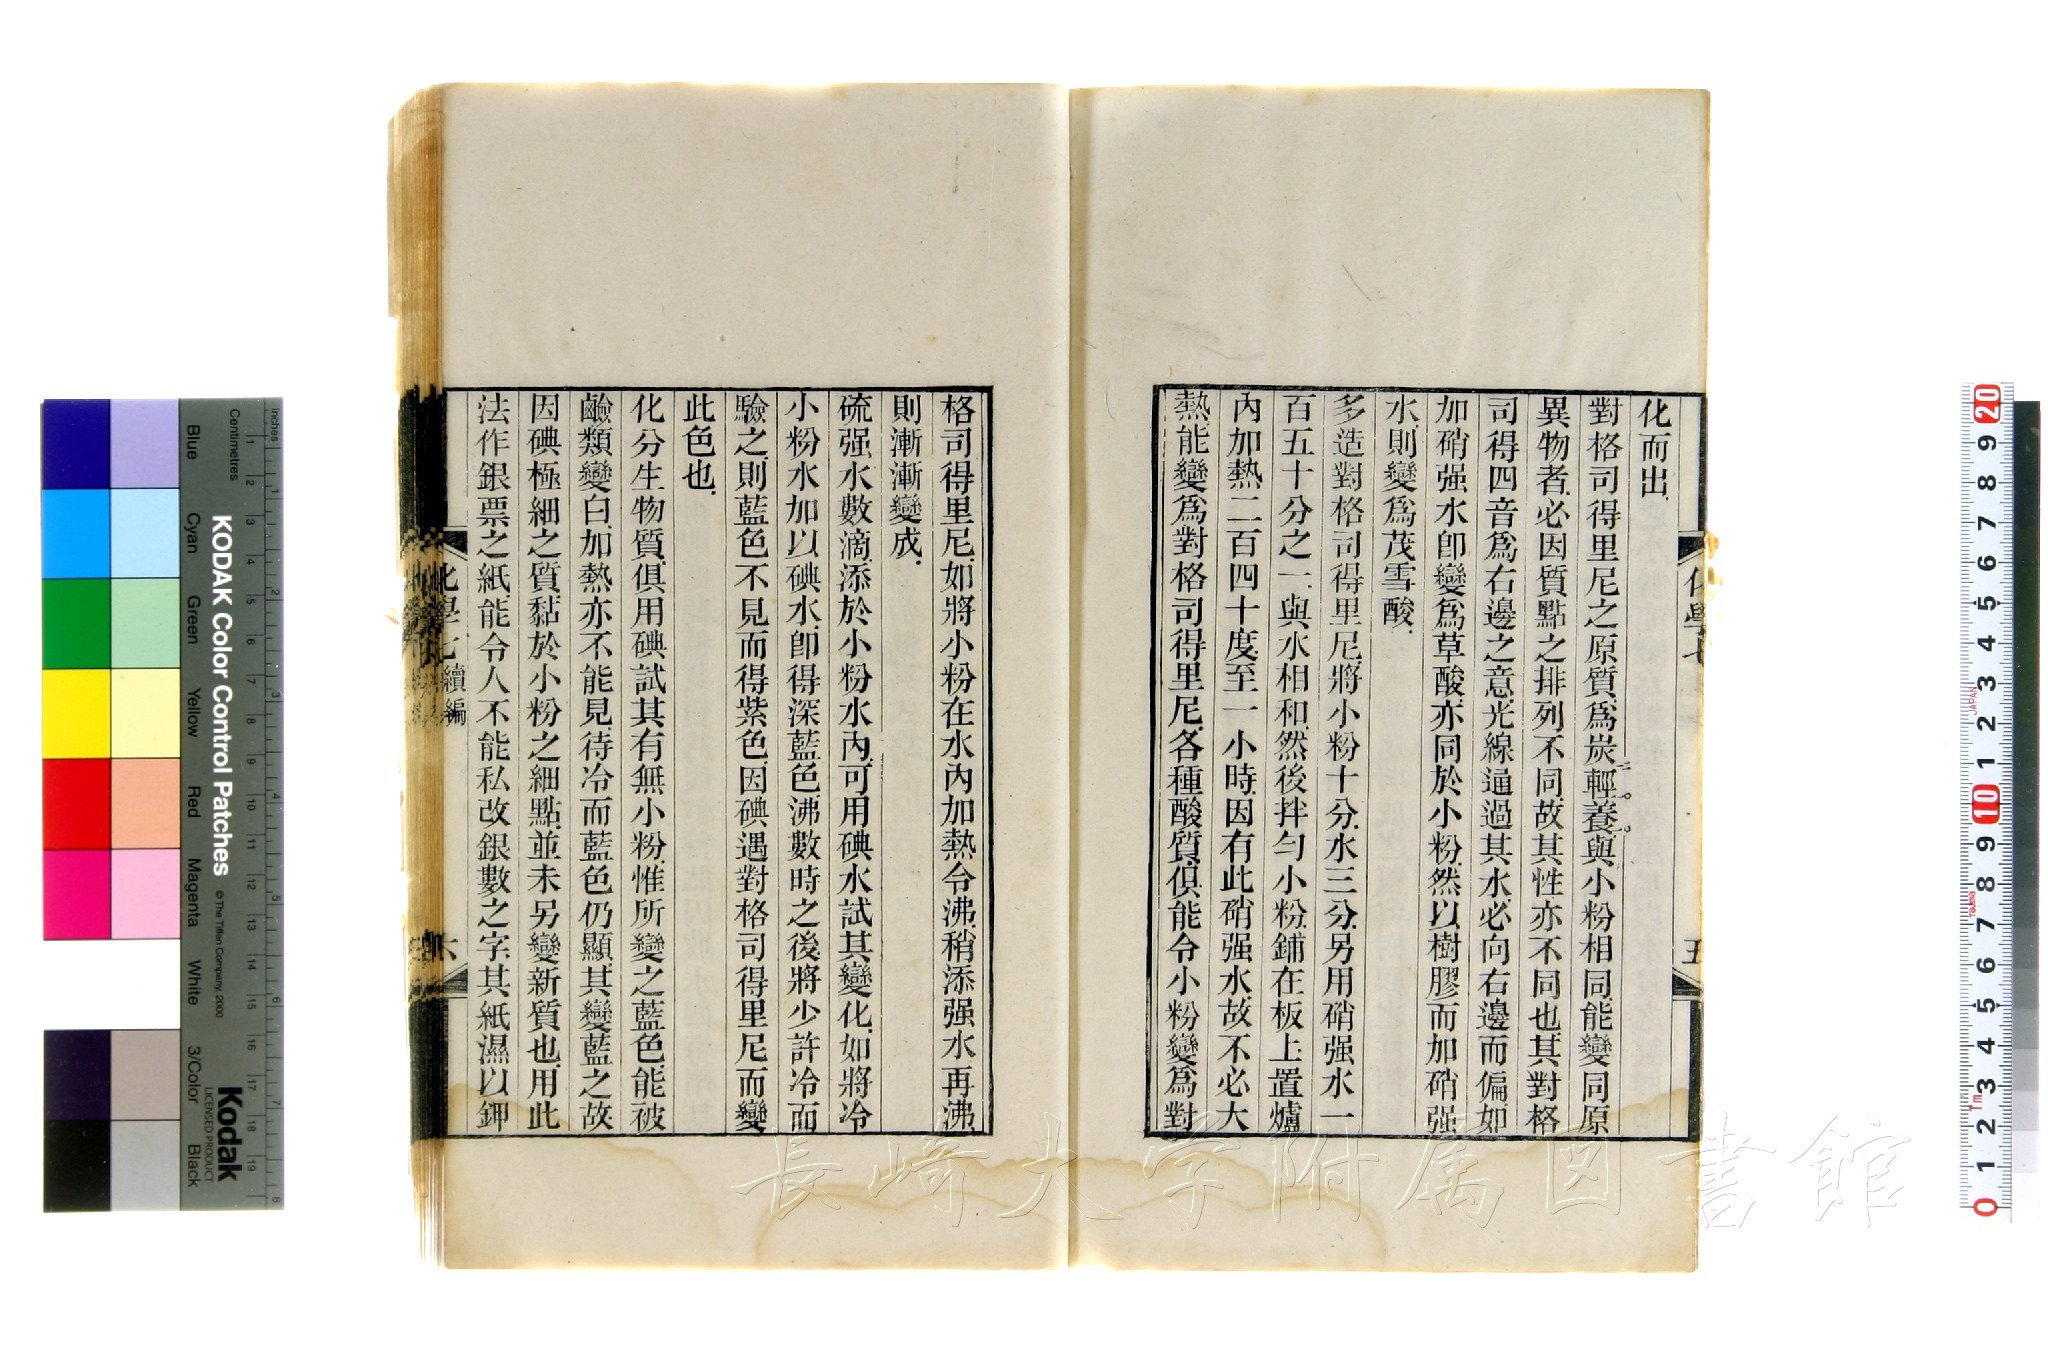 化而出
對格司得里尼之原質爲炭輕養與小粉相同能變同原
異物者必因質點之排列不同故其性亦不同也其對格
司得四音爲右邊之意光線通過其水必向右邊而偏如
加硝强水卽變爲草酸亦同於小粉然以樹膠而加硝强
水則變爲茂雪酸
多造對格司得里尼將小粉十分水三分另用硝强水一
百五十分之一與水相和然後拌勻小粉鋪在板上置爐
內加熱二百四十度至一小時因有此硝强水故不必大
熱能變爲對格司得里尼各種酸質俱能令小粉變爲對
化學七
五
格司得里尼如將小粉在水內加熱令沸稍添强水再沸
則漸漸變成
硫强水數滴添於小粉水內可用碘水試其變化如將冷
小粉水加以碘水卽得深藍色沸數時之後將少許冷而
驗之則藍色不見而得紫色因碘遇對格司得里尼而變
此色也
化分生物質俱用碘試其有無小粉惟所變之藍色能被
鹼類變白加熱亦不能見待冷而藍色仍顯其變藍之故
因碘極細之質黏於小粉之細點並未另變新質也用此
法作銀票之紙能令人不能私改銀數之字其紙濕以鉀
化學七 續編
六
長崎大学附属図書館
KODAK Color Control Patches
©The Tiffen Company, 2000
Kodak
LICENSED PRODUCT
Inches
Centimetres
Blue
Cyan
Green
Yellow
Red
Magenta
White
3/Color
Black